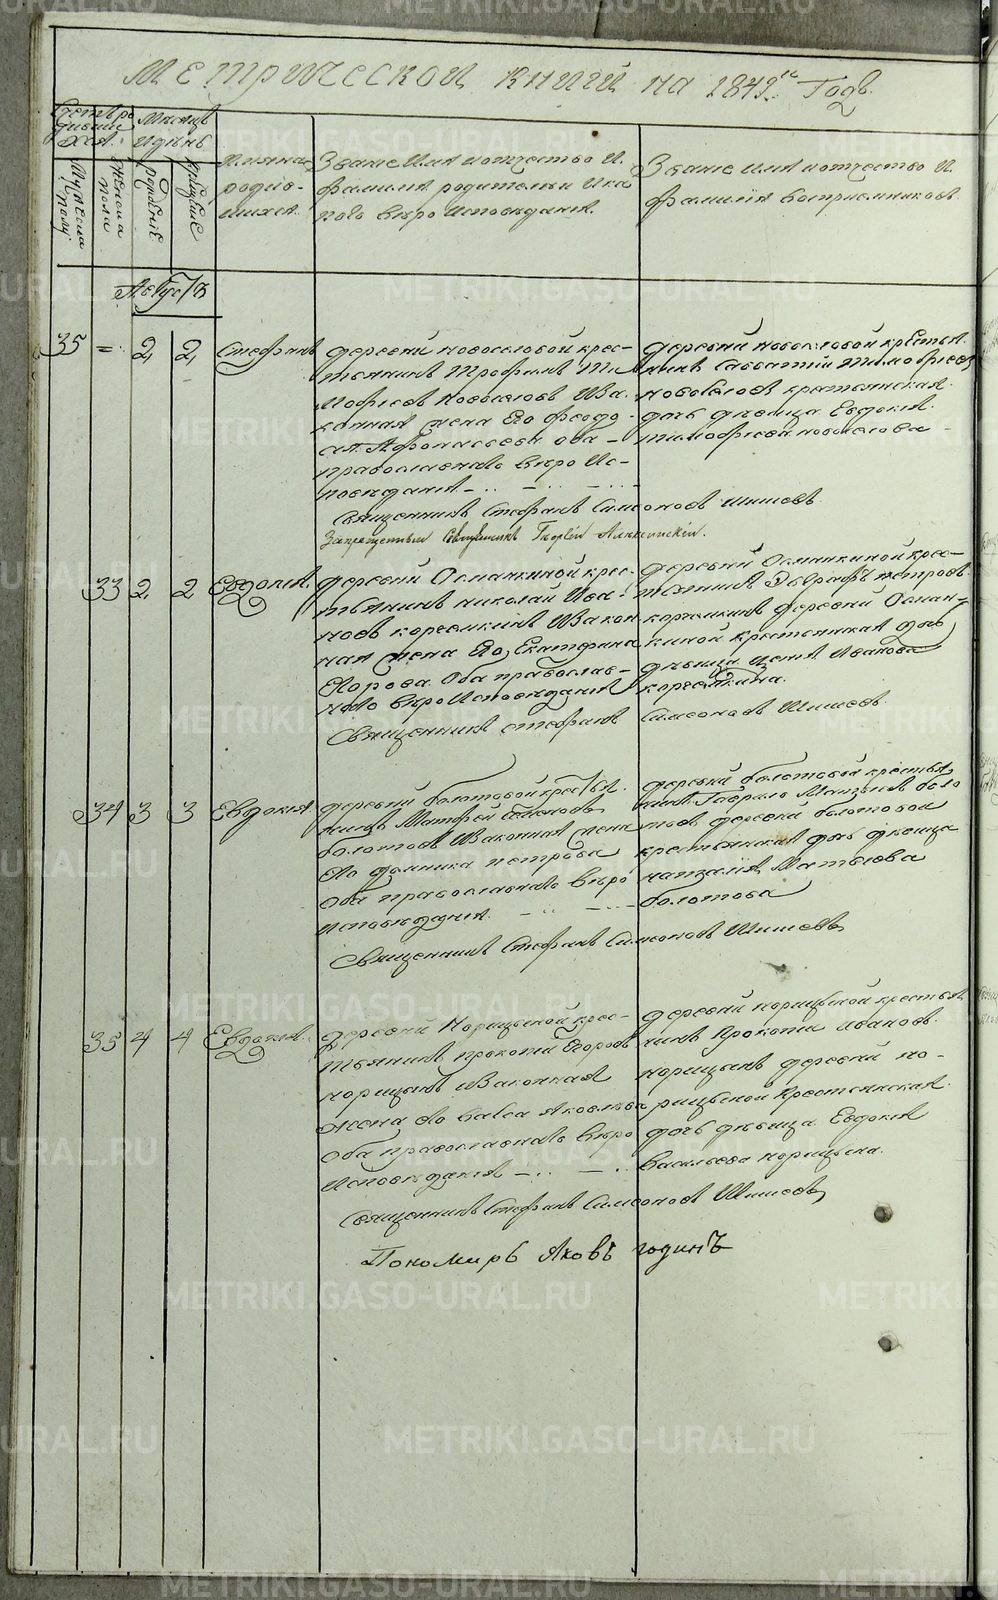 METRIKI.GASO-URAL.RU
Метрической книги на 1849й Годъ.
Счетъ ро
дивших
хся.
Мужеска
полу
Женска
пола
Месяцъ
и день
рождение
крещение
Имяна
родив-
шихся.
Звание имя и отчество и
фамилия родителей и ка
кого веро исповедания.
Звание имя и отчество и
фамилия восприемниковъ.
Августъ
35 = 2 2 Стефанъ
деревни новоселовой крес-
тьянинъ Трофимъ Ти
мофеевъ Новоселовъ и за
конная жена его феодо-
ся Афонасьева оба
православнаго веро ис-
поведания
деревни новоселовой крестьян
нинъ Савватий тимофеевъ
новоселовъ крестьянская
дочь девица Евдокия
тимофеева новоселова
Священникъ Стефанъ Симеоновъ Шишевъ
Запрещенный Священникъ Георгий
33 2 2 Евдокия
деревни Османкиной крес-
тьянинъ николай Ива-
новъ корелкинъ и закон
ная жена его Екатерина
Егорова Оба православ-
наго веро исповедания
деревни Османкиной крес-
тьянинъ Евграфъ петровъ
корелкинъ деревни Осман-
киной крестьянская дочь
девица Иванова
корелкина.
Священникъ стефанъ Симеоновъ Шишевъ
34 3 3 Евдокия
деревни болотовой крестья
нинъ Матфей
болотовъ и законная жена
его домника петрова
оба православнаго веро
исповедания.
деревни болотовой крестья
нинъ Гаврило боло
товъ деревни болотовой
крестьянская дочь девица
наталия Матвеева
болотова
Священникъ Стефанъ Симеоновъ Шишевъ
35 4 4 Евдокия
деревни Норицыной крес-
тьянинъ прокопий Егоровъ
норицынъ и законная
жена его васса яковлева
оба православнаго веро
исповедания
деревни норицыной крестья
нинъ Прокопий Ивановъ
норицынъ деревни но-
рицыной Крестьянская
дочь девица Евдокия
Васильева норицына.
священникъ Стефанъ Симеоновъ Шишевъ
Пономарь Яковъ годинъ